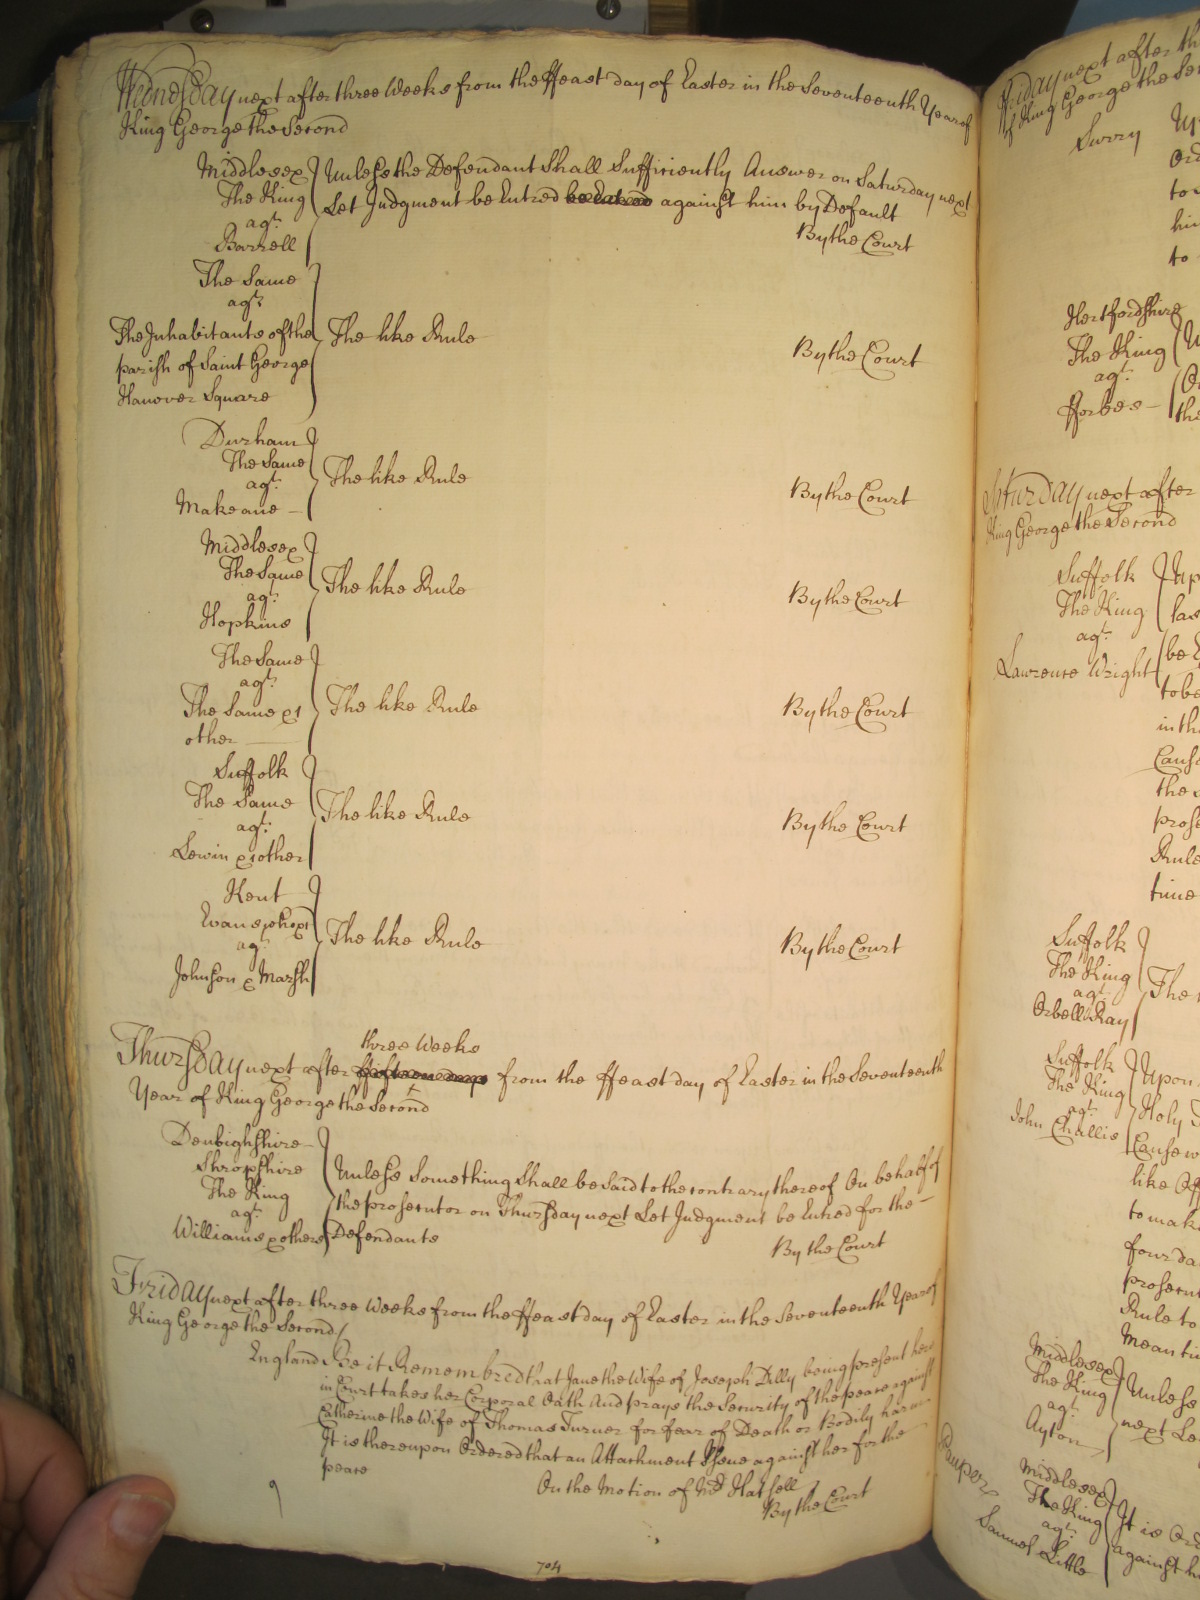 Wednesday next after three Weeks from the ffeast day of Easter in the Seventeenth Year of
King George the Second
Middlesex
The King
agt.
Barrell
Unless the Defendant Shall Sufficiently Answer on Saturday next
Let Judgment be Entred be Entred against him by Default
By the Court
The Same
agt.
The Inhabitants of the
parish of Saint George
Hanover Square
The like Rule
By the Court
Durham
The Same
agt.
Makeane
The like Rule
By the Court
Middlesex
The Same
agt.
Hopkins
The like Rule
By the Court
The Same
agt.
The Same &
other
The like Rule
By the Court
Suffolk
The Same
agt.
Lewin & other
The like Rule
By the Court
Kent
Evans
agt.
Johnson & Marsh
The like Rule
By the Court
three Weeks
Thursday next after ffifteen days from the ffeast day of Easter in the Seventeenth
Year of King George the Second
Denbighshire
Shropshire
The King
agt.
Williams & others
Unless Something Shall be Said to the contrary thereof On behalf of
the prosecutor on Thursday next Let Judgment be Entred for the
Defendants
By the Court
Friday next after three Weeks from the ffeast day of Easter in the Seventeenth Year of
King George the Second
England Be it Remembred that Jane the Wife of Joseph Dilly being present here
in Court takes her Corporal Oath And prays the Security of the peace against
Catherine the Wife of Thomas Turner for fear of Death or Bodily harm
It is thereupon Ordered that an Attachment Issue against her for the
peace
On the Motion of Mr. Hatsell
By the Court
704
Friday next after th
of King George the Se
Surry
Up
Ord
to
him
to
Hertfordshire
The King
agt.
fforbes
U
O
the
Saturday next after
King George the Second
Suffolk
The King
agt.
Lawrence Wright
Up
las
be E
to be
in th
Cause
the S
prose
Rule
time
Suffolk
The King
agt.
Orbell Ray
The
Suffolk
The King
agt.
John Challis
Upon
Holy
Cause
like Off
to mak
four da
prosecut
Rule to
Mean ti
Middlesex
The King
agt.
Ayton
Unless
next Le
Pauper
Middlesex
The King
agt.
Samuel Little
It is Ord
against h